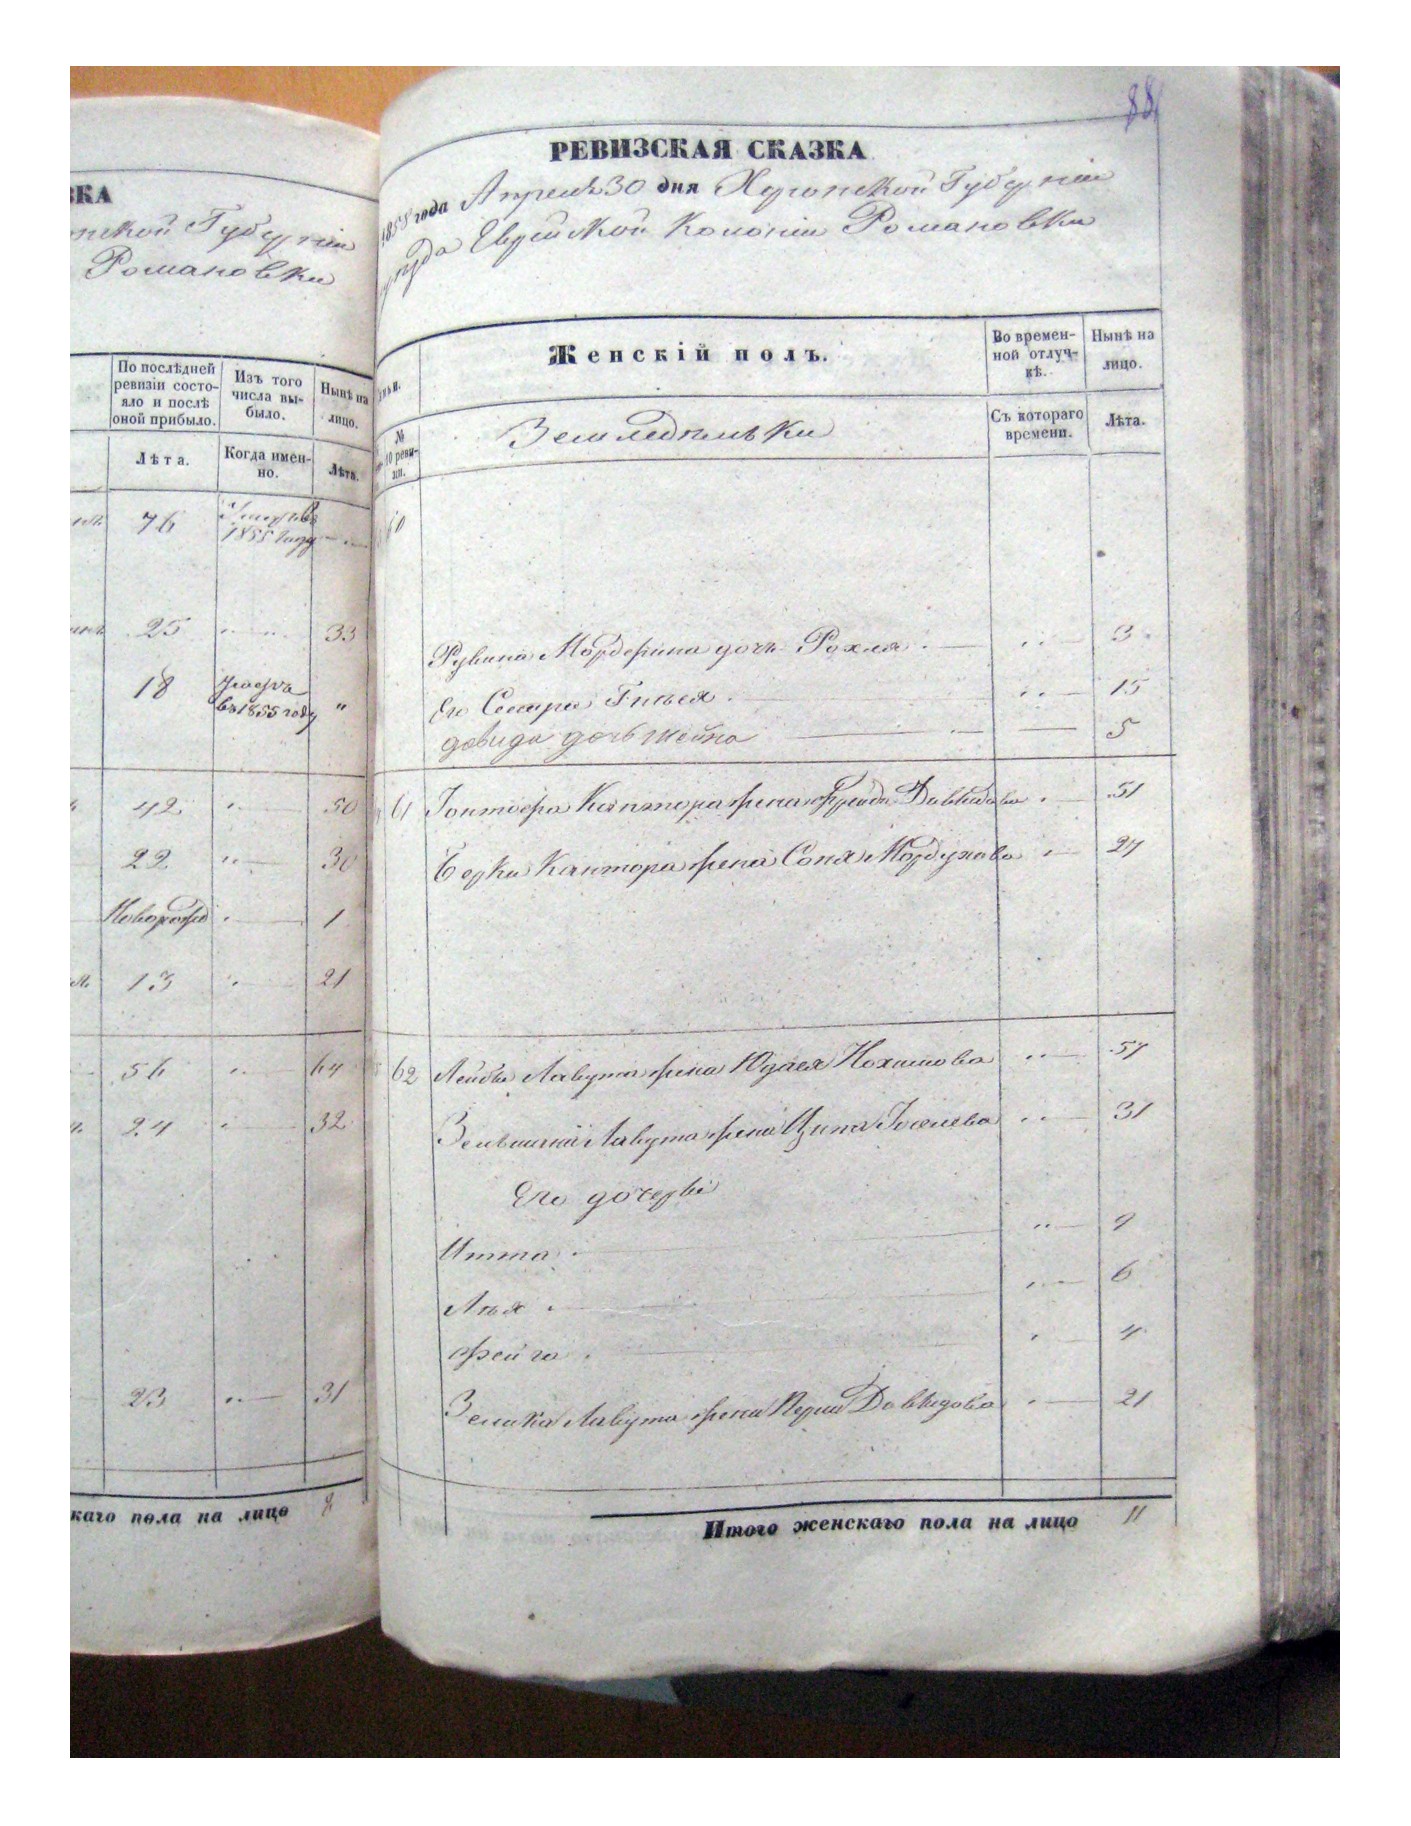 ЗКА
Губерніи
Романовки
По послѣдней ревизіи состояло и послѣ оной прибыло.
Изъ того числа выбыло.
Нынѣ на лицо.
Лѣта.
Когда именно.
Лѣта.
76
1855 году
25
33
18
въ 1855 году
"
42
50
22
30
Новорожд
1
13
21
56
64
24
32
23
31
скаго пола на лицо 8
88
РЕВИЗСКАЯ СКАЗКА
1858 года Апреля 30 дня Херсонской Губерніи
уезда Еврейской Колоніи Романовки
№ по 10 ревизіи.
Женскій полъ.
Во временной отлучкѣ.
Нынѣ на лицо.
Земледельки
Съ котораго времени.
Лѣта.
60
Рувина дочь Рохля 3
Его Сестра 15
давида дочь 5
61 Кантора жена Давидова 51
Берки Кантора жена Соня Мордухова 27
62 Лейбы Лавута жена Юдлея Нохимова 57
Лавута жена Ципа 31
Его дочери
Итта 9
Лея 6
Фейга 4
Зелика Лавута жена Перля Давидова 21
Итого женскаго пола на лицо 11